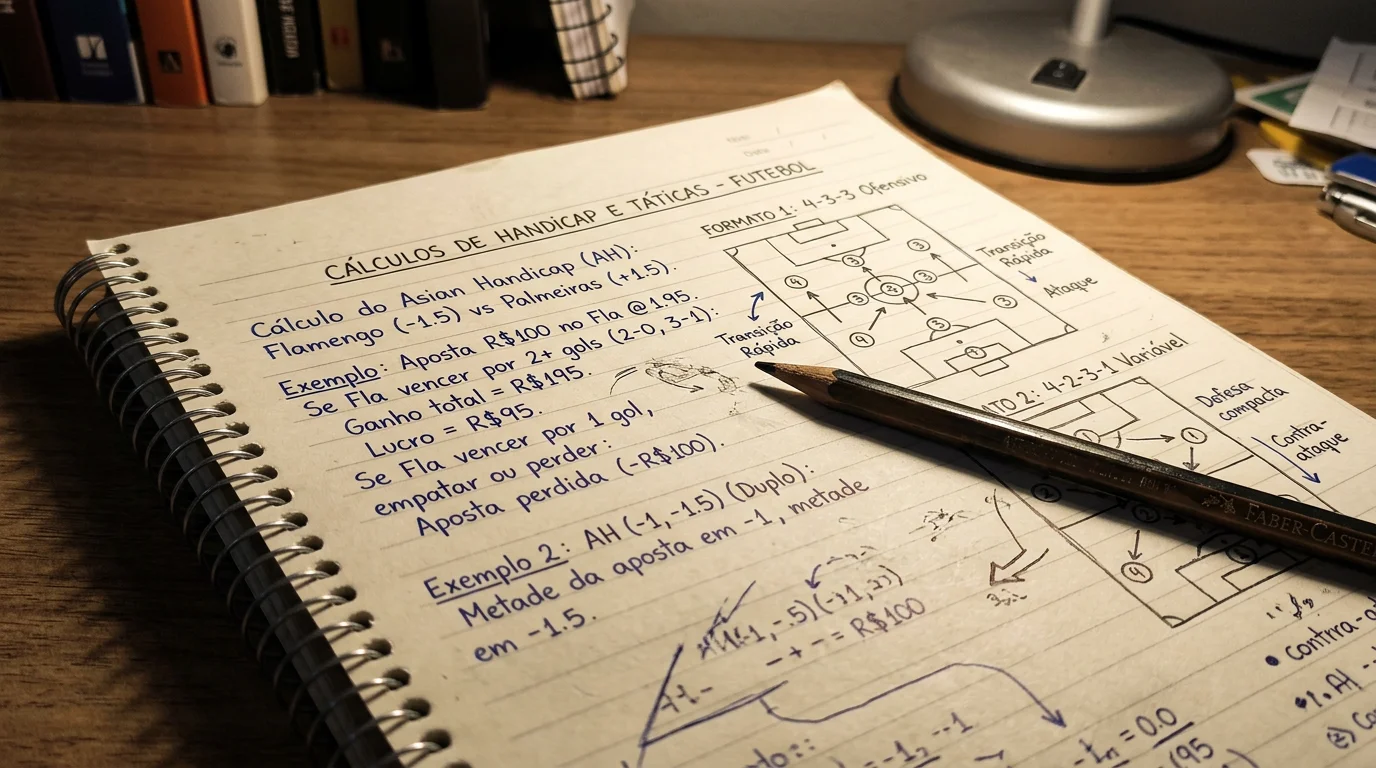 CÁLCULOS DE HANDICAP E TÁTICAS - FUTEBOL
Cálculo do Asian Handicap (AH):
Flamengo (-1.5) vs Palmeiras (+1.5).
Exemplo: Aposta R$100 no Fla @ 1.95.
Se Fla vencer por 2+ gols (2-0, 3-1):
Ganho total = R$195.
Lucro = R$95.
Se Fla vencer por 1 gol,
empatar ou perder:
Aposta perdida (-R$100).
Exemplo 2: AH (-1, -1.5) (Duplo):
Metade da aposta em -1, metade
em -1.5.
- + - = R$100
= 0.0
FORMATO 1: 4-3-3 Ofensivo
Transição
Rápida
Ataque
Transição
Rápida
2: 4-2-3-1 Variável
Defesa
compacta
Contra-
ataque
FABER-CASTE